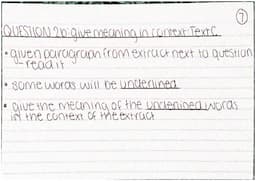 7
QUESTION 2b: give meaning in context Text C
• given paragraph from extract next to question
- read it
• some words will be underlined
• give the meaning of the underlined words
in the context of the extract